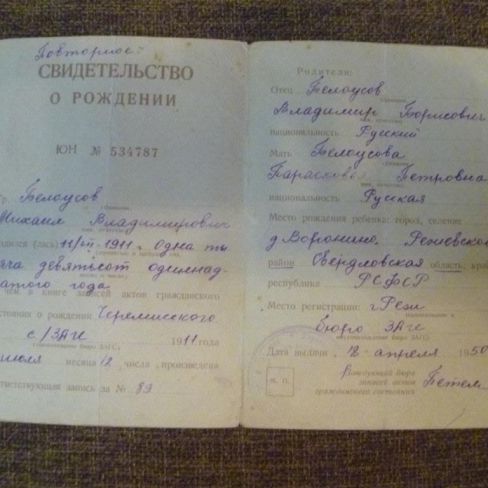 Повторное
СВИДЕТЕЛЬСТВО
О РОЖДЕНИИ
ЮН № 534787
гр. Белоусов
Михаил Владимирович
родился (лась) 11/VII-1911. одна ты
сяча девятьсот одиннад
цатого года
чем в книге записей актов гражданского
состояния о рождении Черемисского
с/ЗАГС 1911 года
июля месяца 12 числа произведена
соответствующая запись за № 89
Родители:
Отец Белоусов
Владимир Борисович
национальность Русский
Мать Белоусова
Парасковья Петровна
национальность Русская
Место рождения ребенка: город, селение
д. Воронино. Режевской
район Свердловская область, край
республика РСФСР
Место регистрации: г. Реж
бюро ЗАГС
Дата выдачи апреля 1950
М. П.
Заведующий бюро
записей актов
гражданского состояния